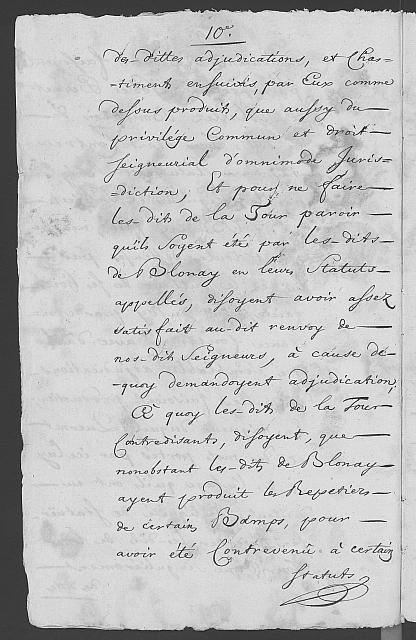 10e.
des-dittes adjudications, et Chas-
timent ensuivis, par Eux comme
dessus produit, que aussy du
privilége Commun et droit
seigneurial d'omnimode Juris-
-diction, Et pour ne faire
les-dits de la Tour paroir
qu'ils soyent été par les-dits
de Blonay en leurs Statuts
appellés, disoyent avoir assez
satisfait au-dit renvoy de
nos-dits Seigneurs, à cause de-
-quoy demandoyent adjudication,
A quoy les-dits de la Tour
Contredisants, disoyent, que
nonobstant les-dits de Blonay
ayent produit les
de certains pour
avoir été Contrevenu à certains
Statuts